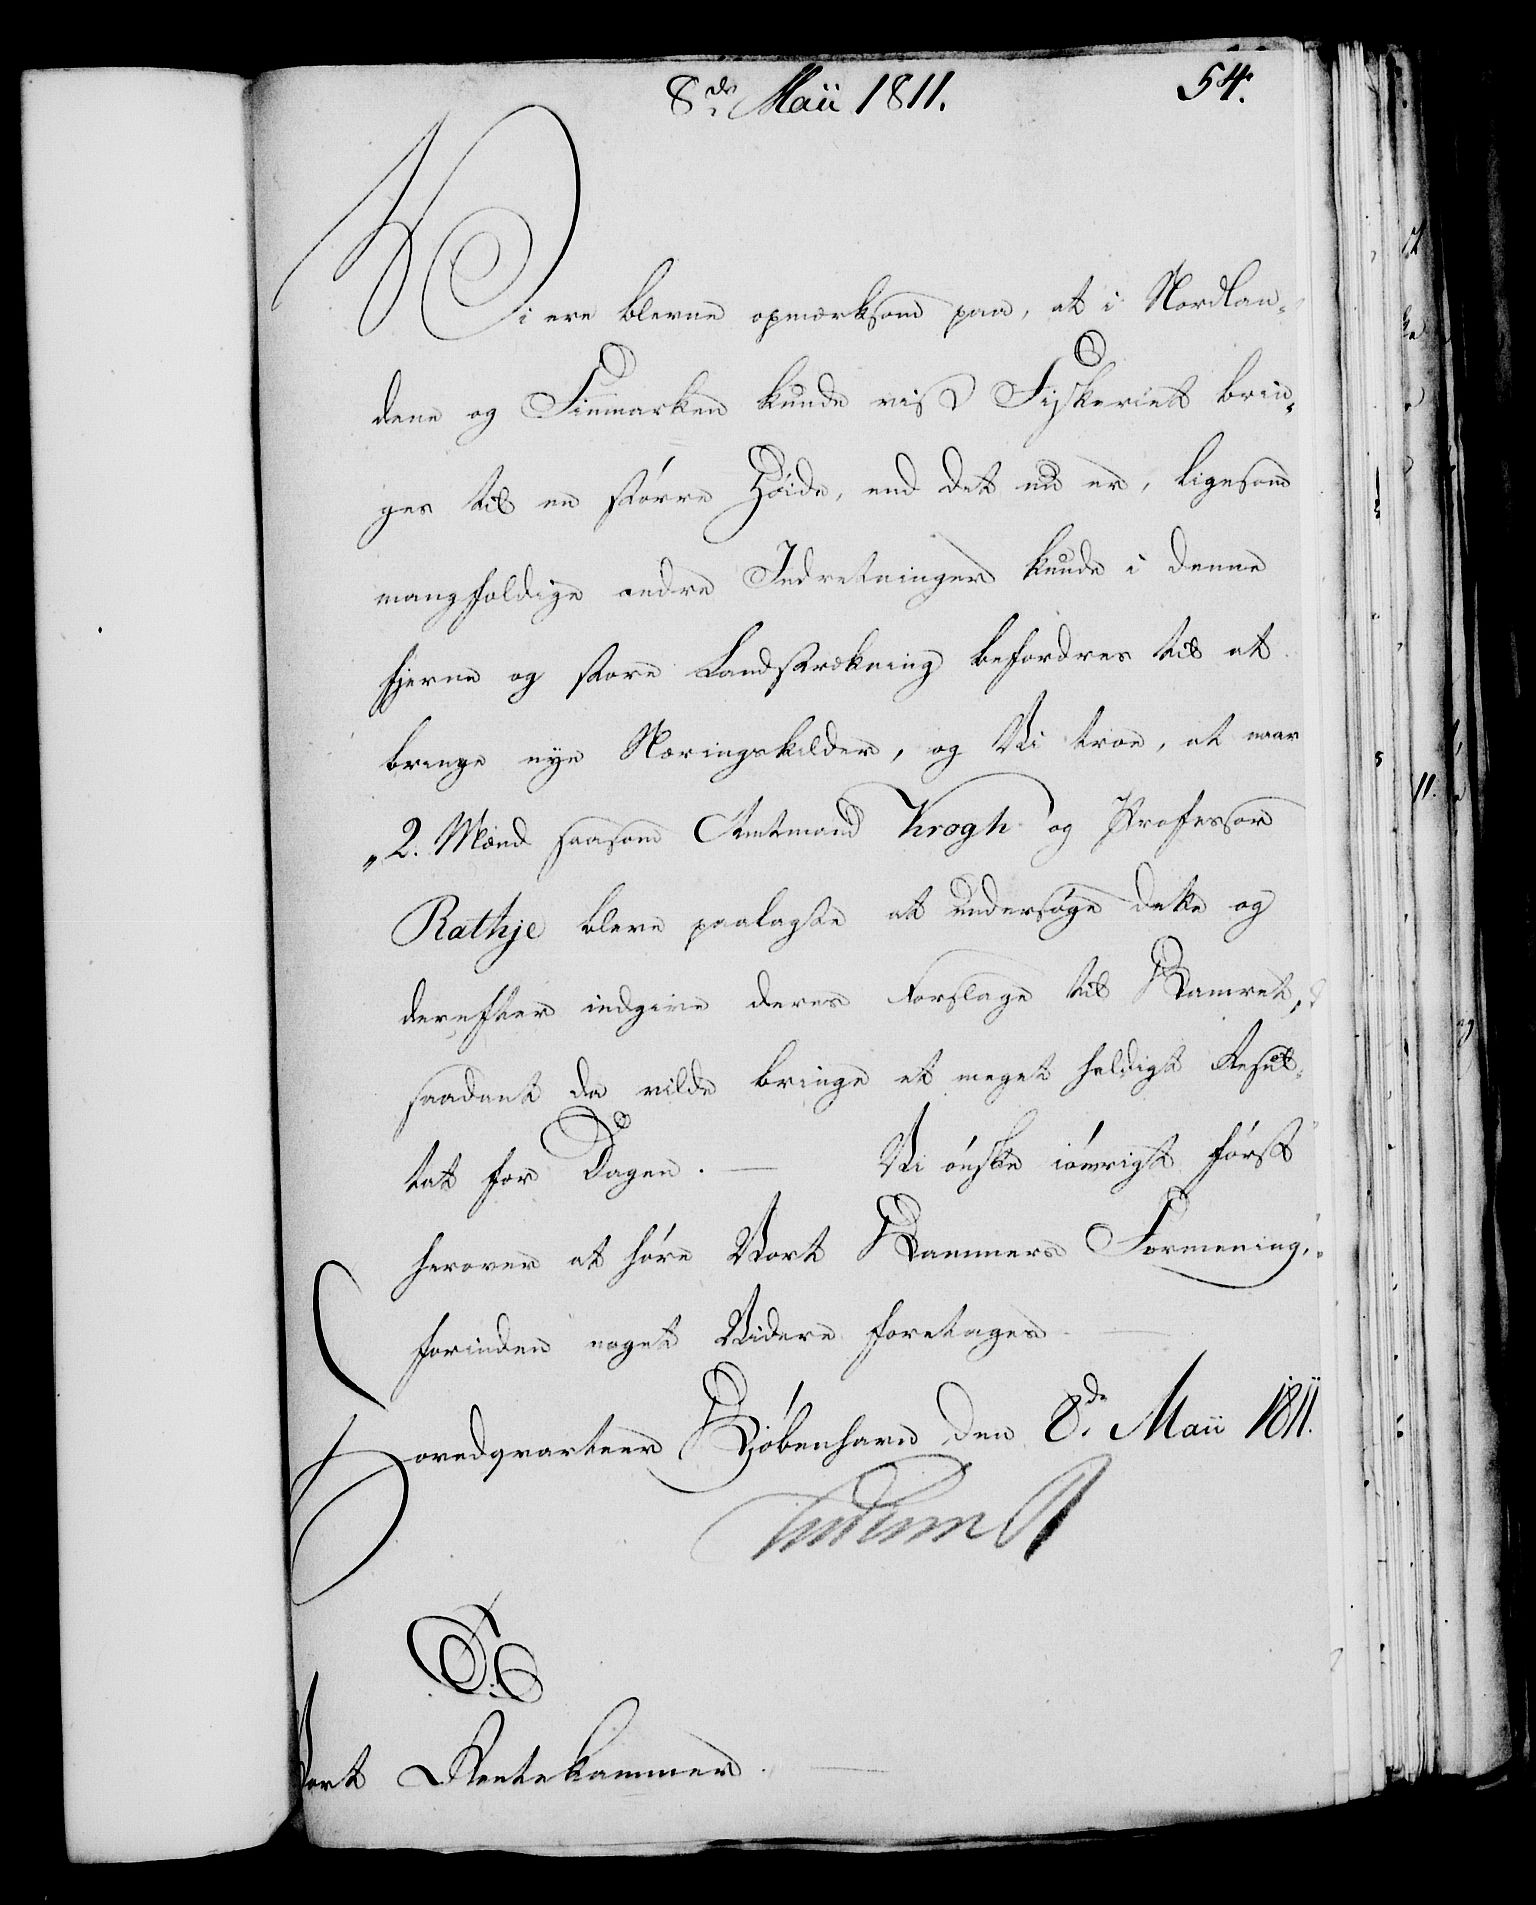 8de Maii 1811.
54.
Vi ere blevne opmærksom paa, at i Nordlan-
dene og Finmarken kunde vist Fiskeriet brin-
ges til en större Höide, end det nu er, ligesom
mangfoldige andre Indretninger kunde i denne
fjerne og store Landstrækning befordres til at
bringe nye Næringskilder, og Vi troe, at naar
„2. Mænd saasom Amtmand Krogh og Professor
Rathje bleve paalagte at undersöge dette og
derefter indgive deres Forslage til Kamret,
saadant da vilde bringe et meget heldigt Resul-
tat for Dagen. — Vi önske iövrigt först
herover at höre Vort Kammers Formening,
forinden noget Videre foretages —
Hovedqvarteer Kjöbenhavn den 8de Maii 1811.
Til
Vort Rentekammer. —